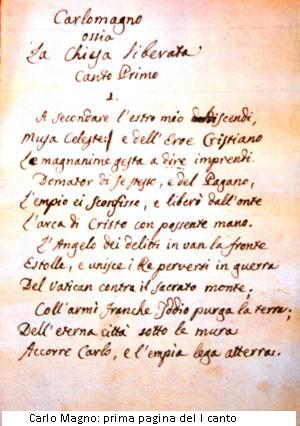 Carlomagno
ossia
La Chiesa liberata
Canto Primo
1.
A secondare l'estro mio discendi,
Musa Celeste! e dell'Eroe Cristiano
Le magnanime gesta a dire imprendi.
Domator di se stesso, e del Pagano,
L'empio ei sconfisse, e liberò dall'onte
L'arca di Cristo con possente mano.
L'Angelo dei delitti in van la fronte
Estolle, e unisce i Re perversi in guerra
Del Vatican contra il sacrato monte.
Coll'armi Franche Iddio purga la terra;
Dell'eterna città sotto le mura
Accorre Carlo, e l'empia lega atterra.
Carlo Magno: prima pagina del I canto